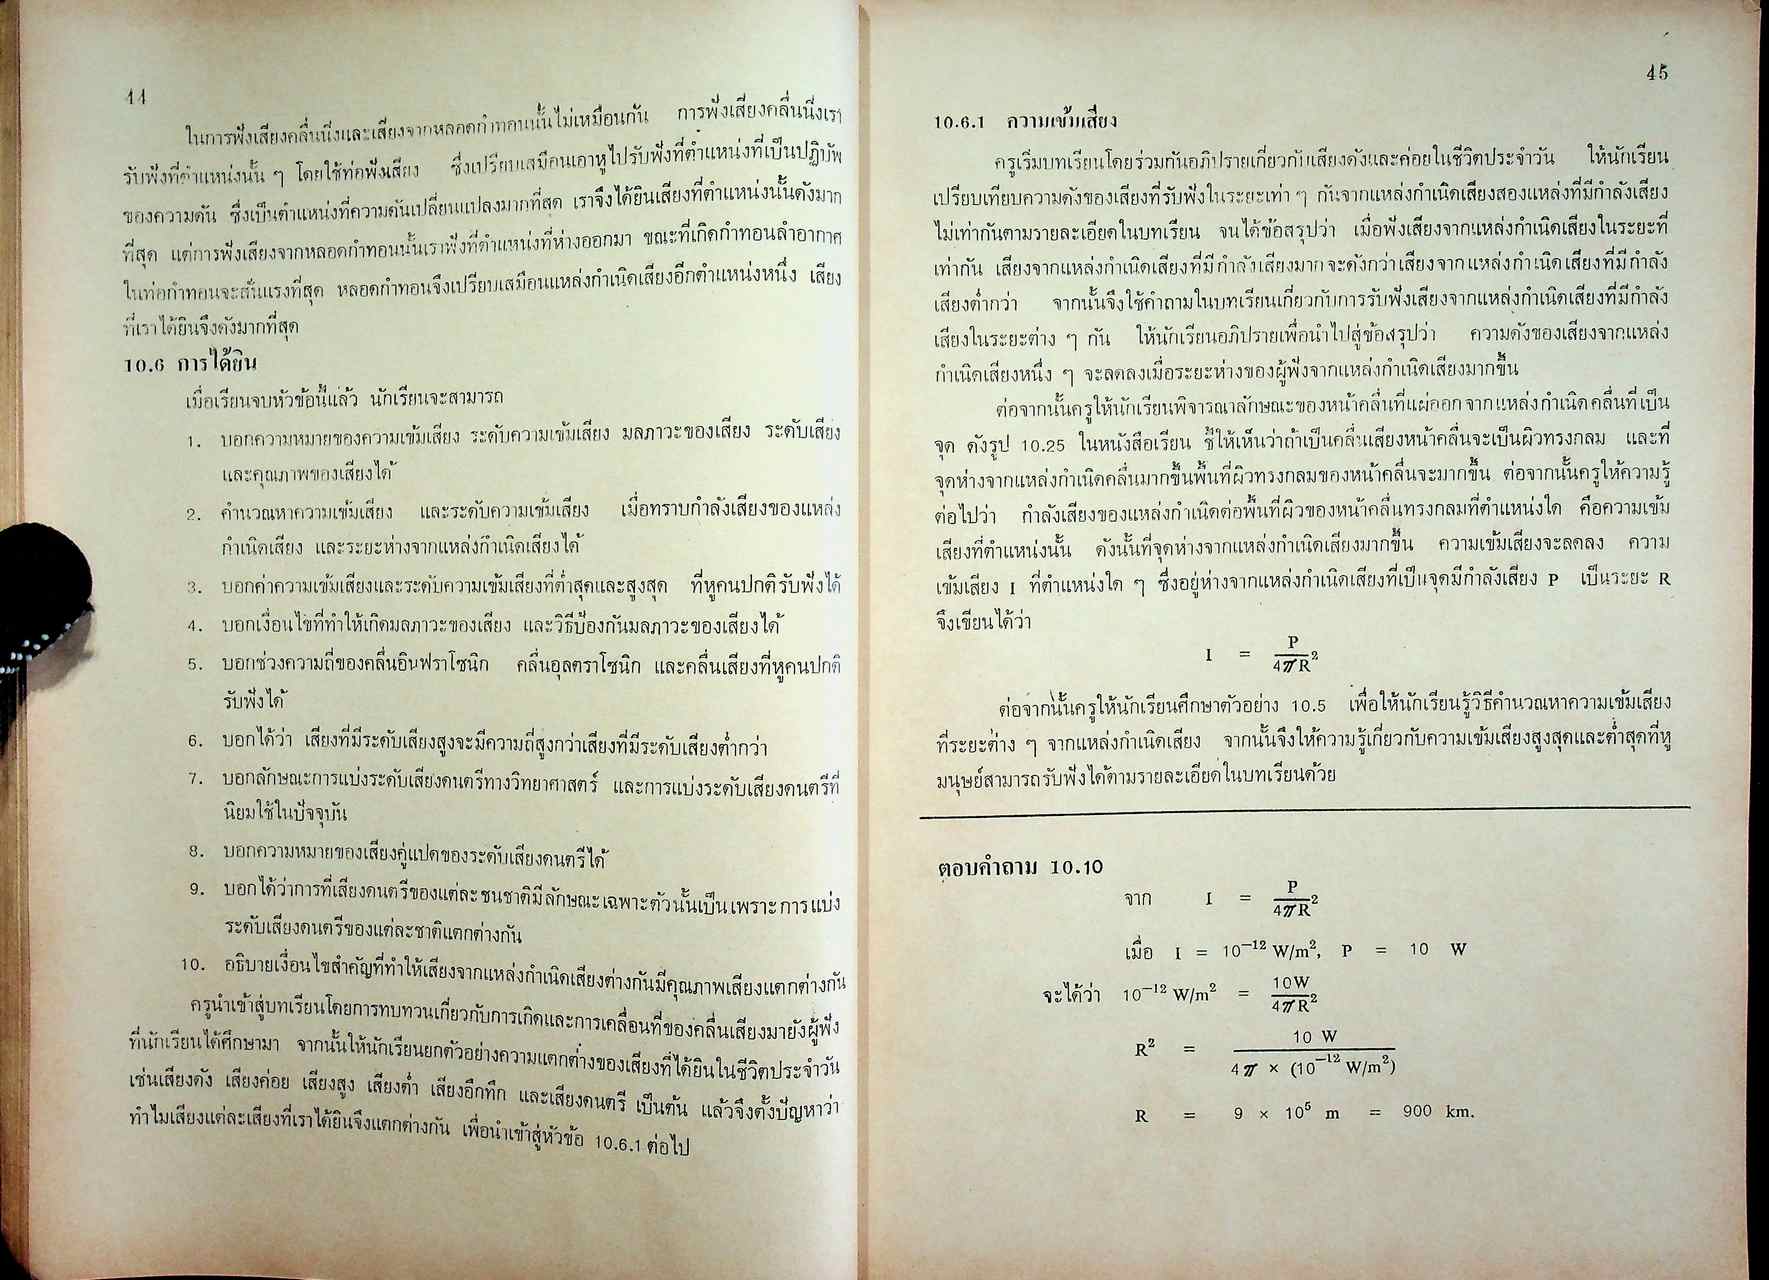 44
ในการฟังเสียงคลื่นนิ่งและเสียงจากหลอดกำทอนนั้นไม่เหมือนกัน การฟังเสียงคลื่นนิ่งเรา
รับฟังที่ตำแหน่งนั้น ๆ โดยใช้ท่อฟังเสียง ซึ่งเปรียบเสมือนเอาหูไปรับฟังที่ตำแหน่งที่เป็นปฏิบัพ
ของความดัน ซึ่งเป็นตำแหน่งที่ความดันเปลี่ยนแปลงมากที่สุด เราจึงได้ยินเสียงที่ตำแหน่งนั้นดังมาก
ที่สุด แต่การฟังเสียงจากหลอดกำทอนนั้นเราฟังที่ตำแหน่งที่ห่างออกมา ขณะที่เกิดกำทอนลำอากาศ
ในท่อกำทอนจะสั่นแรงที่สุด หลอดกำทอนจึงเปรียบเสมือนแหล่งกำเนิดเสียงอีกตำแหน่งหนึ่ง เสียง
ที่เราได้ยินจึงดังมากที่สุด
10.6 การได้ยิน
เมื่อเรียนจบหัวข้อนี้แล้ว นักเรียนจะสามารถ
1. บอกความหมายของความเข้มเสียง ระดับความเข้มเสียง มลภาวะของเสียง ระดับเสียง
และคุณภาพของเสียงได้
2. คำนวณหาความเข้มเสียง และระดับความเข้มเสียง เมื่อทราบกำลังเสียงของแหล่ง
กำเนิดเสียง และระยะห่างจากแหล่งกำเนิดเสียงได้
3. บอกค่าความเข้มเสียงและระดับความเข้มเสียงที่ต่ำสุดและสูงสุด ที่หูคนปกติรับฟังได้
4. บอกเงื่อนไขที่ทำให้เกิดมลภาวะของเสียง และวิธีป้องกันมลภาวะของเสียงได้
5. บอกช่วงความถี่ของคลื่นอินฟราโซนิก คลื่นอุลตราโซนิก และคลื่นเสียงที่หูคนปกติ
รับฟังได้
6. บอกได้ว่า เสียงที่มีระดับเสียงสูงจะมีความถี่สูงกว่าเสียงที่มีระดับเสียงต่ำกว่า
7. บอกลักษณะการแบ่งระดับเสียงดนตรีทางวิทยาศาสตร์ และการแบ่งระดับเสียงดนตรีที่
นิยมใช้ในปัจจุบัน
8. บอกความหมายของเสียงคู่แปดของระดับเสียงดนตรีได้
9. บอกได้ว่าการที่เสียงดนตรีของแต่ละชนชาติมีลักษณะเฉพาะตัวนั้นเป็นเพราะการแบ่ง
ระดับเสียงดนตรีของแต่ละชาติแตกต่างกัน
10. อธิบายเงื่อนไขสำคัญที่ทำให้เสียงจากแหล่งกำเนิดเสียงต่างกันมีคุณภาพเสียงแตกต่างกัน
ครูนำเข้าสู่บทเรียนโดยการทบทวนเกี่ยวกับการเกิดและการเคลื่อนที่ของคลื่นเสียงมายังผู้ฟัง
ที่นักเรียนได้ศึกษามา จากนั้นให้นักเรียนยกตัวอย่างความแตกต่างของเสียงที่ได้ยินในชีวิตประจำวัน
เช่นเสียงดัง เสียงค่อย เสียงสูง เสียงต่ำ เสียงอึกทึก และเสียงดนตรี เป็นต้น แล้วจึงตั้งปัญหาว่า
ทำไมเสียงแต่ละเสียงที่เราได้ยินจึงแตกต่างกัน เพื่อนำเข้าสู่หัวข้อ 10.6.1 ต่อไป
45
10.6.1 ความเข้มเสียง
ครูเริ่มบทเรียนโดยร่วมกันอภิปรายเกี่ยวกับเสียงดังและค่อยในชีวิตประจำวัน ให้นักเรียน
เปรียบเทียบความดังของเสียงที่รับฟังในระยะเท่า ๆ กันจากแหล่งกำเนิดเสียงสองแหล่งที่มีกำลังเสียง
ไม่เท่ากันตามรายละเอียดในบทเรียน จนได้ข้อสรุปว่า เมื่อฟังเสียงจากแหล่งกำเนิดเสียงในระยะที่
เท่ากัน เสียงจากแหล่งกำเนิดเสียงที่มีกำลังเสียงมากจะดังกว่าเสียงจากแหล่งกำเนิดเสียงที่มีกำลัง
เสียงต่ำกว่า จากนั้นจึงใช้คำถามในบทเรียนเกี่ยวกับการรับฟังเสียงจากแหล่งกำเนิดเสียงที่มีกำลัง
เสียงในระยะต่าง ๆ กัน ให้นักเรียนอภิปรายเพื่อนำไปสู่ข้อสรุปว่า ความดังของเสียงจากแหล่ง
กำเนิดเสียงหนึ่ง ๆ จะลดลงเมื่อระยะห่างของผู้ฟังจากแหล่งกำเนิดเสียงมากขึ้น
ต่อจากนั้นครูให้นักเรียนพิจารณาลักษณะของหน้าคลื่นที่แผ่ออกจากแหล่งกำเนิดคลื่นที่เป็น
จุด ดังรูป 10.25 ในหนังสือเรียน ชี้ให้เห็นว่าถ้าเป็นคลื่นเสียงหน้าคลื่นจะเป็นผิวทรงกลม และที่
จุดห่างจากแหล่งกำเนิดคลื่นมากขึ้นพื้นที่ผิวทรงกลมของหน้าคลื่นจะมากขึ้น ต่อจากนั้นครูให้ความรู้
ต่อไปว่า กำลังเสียงของแหล่งกำเนิดต่อพื้นที่ผิวของหน้าคลื่นทรงกลมที่ตำแหน่งใด คือความเข้ม
เสียงที่ตำแหน่งนั้น ดังนั้นที่จุดห่างจากแหล่งกำเนิดเสียงมากขึ้น ความเข้มเสียงจะลดลง ความ
เข้มเสียง I ที่ตำแหน่งใด ๆ ซึ่งอยู่ห่างจากแหล่งกำเนิดเสียงที่เป็นจุดมีกำลังเสียง P เป็นระยะ R
จึงเขียนได้ว่า
I = P / 4πR²
ต่อจากนั้นครูให้นักเรียนศึกษาตัวอย่าง 10.5 เพื่อให้นักเรียนรู้วิธีคำนวณหาความเข้มเสียง
ที่ระยะต่าง ๆ จากแหล่งกำเนิดเสียง จากนั้นจึงให้ความรู้เกี่ยวกับความเข้มเสียงสูงสุดและต่ำสุดที่หู
มนุษย์สามารถรับฟังได้ตามรายละเอียดในบทเรียนด้วย
ตอบคำถาม 10.10
จาก I = P / 4πR²
เมื่อ I = 10⁻¹² W/m², P = 10 W
จะได้ว่า 10⁻¹² W/m² = 10W / 4πR²
R² = 10 W / 4π × (10⁻¹² W/m²)
R = 9 × 10⁵ m = 900 km.